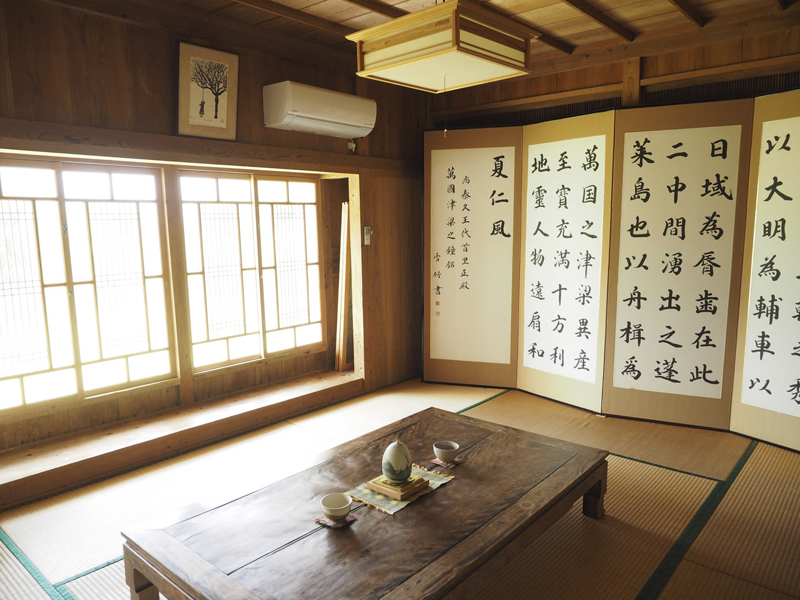 以大明為輔車以
日域為脣齒在此
二中間湧出之蓬
莱島也以舟楫為
萬国之津梁異産
至寶充満十方刹
地靈人物遠扇和
夏仁風
尚泰久王代首里正殿
萬國津梁之鐘銘